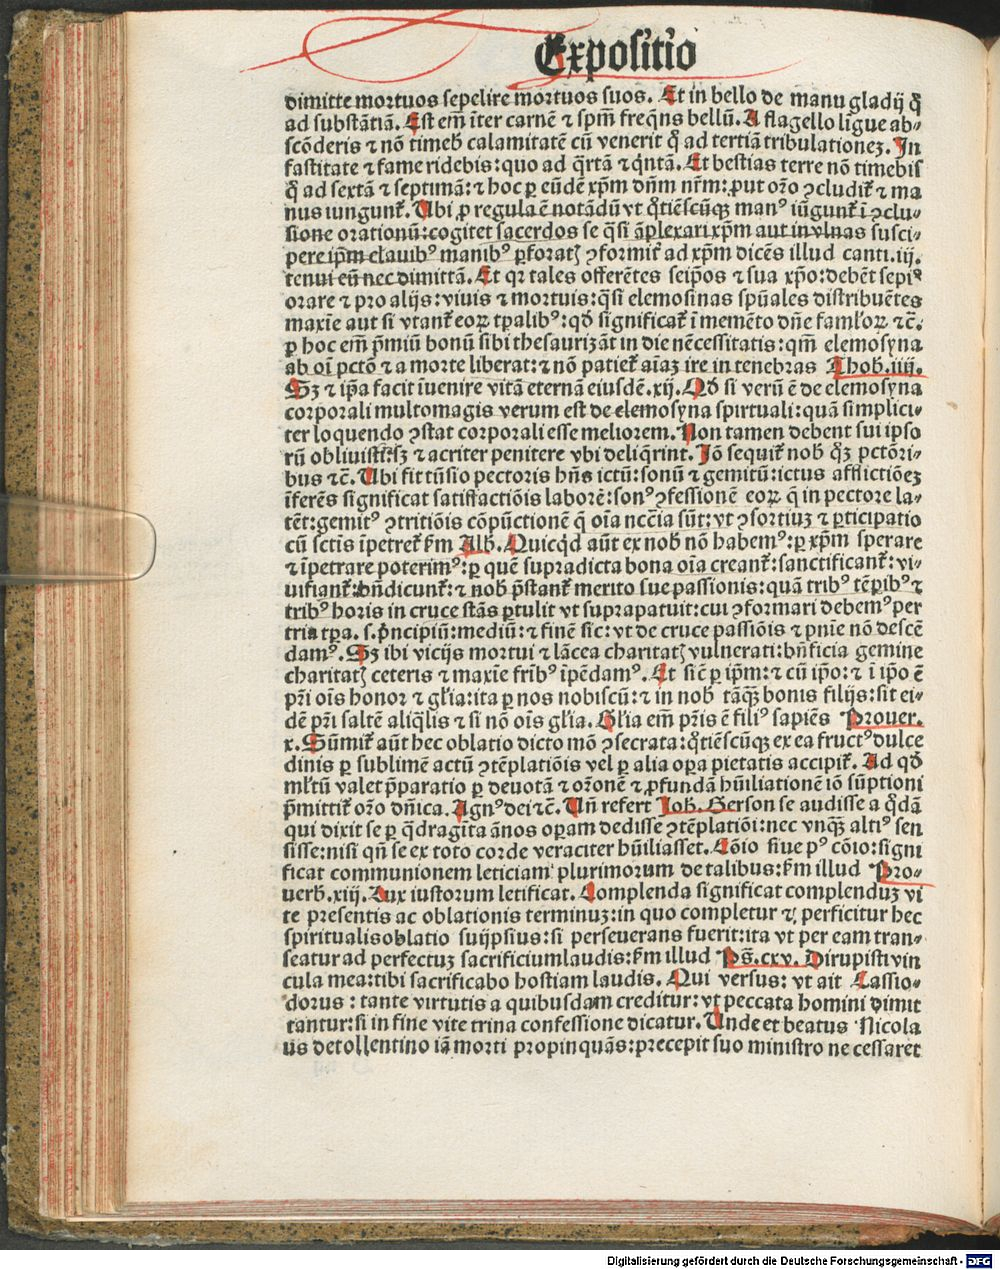 Expositio
dimitte mortuos sepelire mortuos suos. Et in bello de manu gladij q̊
ad substātiā. Est em̄ īter carnē ⁊ spm̄ freqn̄s bellū. A flagello ligue ab⸗
scōderis ⁊ nō timeb̄ calamitatē cū venerit q̊ ad tertiā tribulationeꝫ. In
fastitate ⁊ fame ridebis: quo ad q̄rtā ⁊ q̄ntā. Et bestias terre nō timebis
q̊ ad sextā ⁊ septimā: ⁊ hoc ꝑ eūdē xp̄m dn̄m nr̄m: ꝓut or̄o ↄcludit̄ ⁊ ma
nus iungunt̄. Ubi ꝓ regula ē notādū vt q̊tiēscūqꝫ manꝰ iūgunt̄ ī ↄclu⸗
sione orationū: cogitet sacerdos se q̄si āplexari xp̄m aut in vlnas susci⸗
pere ip̄m clauibꝰ manibꝰ ꝑforatꝭ ↄformit̄ ad xp̄m dicēs illud canti. iij.
tenui eū nec dimittā. Et qꝛ tales offerētes seip̄os ⁊ sua xp̄o: debēt sepiꝰ
orare ⁊ pro alijs: viuis ⁊ mortuis: q̄si elemosinas spūales distribuētes
maxīe aut si vtant̄ eoꝝ tp̄alibꝰ: qd̄ significat̄ ī memēto dn̄e faml̄oꝝ ⁊c̄.
ꝑ hoc em̄ p̄miū bonū sibi thesaurizāt in die nēcessitatis: qm̄ elemosyna
ab oī pctō ⁊ a morte liberat: ⁊ nō patiet̄ aīaꝫ ire in tenebras Thob. iiij.
Sꝫ ⁊ ip̄a facit īuenire vitā eternā eiusdē. xij. Qd̄ si verū ē de elemosyna
corporali multomagis verum est de elemosyna spirtuali: quā simplici⸗
ter loquendo ↄstat corporali esse meliorem. Non tamen debent sui ipso
rū obliuisti: sꝫ ⁊ acriter penitere vbi deliq̄rint. Iō sequit̄ nob̄ qꝫ pctōri⸗
bus ⁊c̄. Ubi fit tūsio pectoris hn̄s ictū: sonū ⁊ gemitū: ictus afflictiōeꝫ
īferēs significat satiffactiōis laborē: sonꝰ ↄfessionē eoꝝ q̄ in pectore la⸗
tēt: gemitꝰ ↄtritiōis cōpūctionē q̄ oīa nccīa sūt: vt ↄsortiuꝫ ⁊ ꝑticipatio
cū sctīs īpetret ẜm Alb̄. Quicqd̄ aūt ex nob̄ nō habemꝰ: ꝑ xp̄m sperare
⁊ īpetrare poterimꝰ: ꝑ quē supradicta bona oīa creant̄: sanctificant̄: vi⸗
uifiant̄: bn̄dicunt̄: ⁊ nob̄ p̄stant̄ merito sue passionis: quā tribꝰ tēp̄ibꝰ ⁊
tribꝰ horis in cruce stās ꝑtulit vt supra patuit: cui ↄformari debemꝰ per
tria tp̄a. s. p̄ncipiū: mediū: ⁊ finē sic: vt de cruce passiōis ⁊ pn̄ie nō descē
damꝰ. Sꝫ ibi vicijs mortui ⁊ lācea charitatꝭ vulnerati: bn̄ficia gemine
charitatꝭ ceteris ⁊ maxīe frībꝰ īpēdamꝰ. Et sic̄ ꝑ ip̄m: ⁊ cū ip̄o: ⁊ ī ip̄o ē
pr̄i oīs honor ⁊ gl̄ia: ita ꝑ nos nobiscū: ⁊ in nob̄ tāqꝫ bonis filijs: sit ei⸗
dē pr̄i saltē aliq̄lis ⁊ si nō oīs gl̄ia. Gl̄ia em̄ pr̄is ē filiꝰ sapiēs Prouer.
x. Sūmit̄ aūt hec oblatio dicto mō ↄsecrata: q̊tiēscūqꝫ ex ea fructꝰ dulce
dinis ꝑ sublimē actū ↄtēplatiōis vel ꝑ alia oꝑa pietatis accipit̄. Ad qd̄
ml̄tū valet p̄paratio ꝑ deuotā ⁊ or̄onē ⁊ ꝓfundā hūiliationē iō sūptioni
p̄mittit̄ or̄o dn̄ica. Agnꝰ dei ⁊c̄. Un̄ refert Ioh̄. Gerson se audisse a q̊dā
qui dixit se ꝑ q̄dragīta ānos oꝑam dedisse ↄtēplatiōi: nec vnqꝫ altiꝰ sen
sisse: nisi qn̄ se ex toto corde veraciter hūiliasset. Cōio siue pꝰ cōio: signi
ficat communionem leticiam plurimorum de talibus: ẜm illud Pro⸗
uerb. xiij. Lux iustorum letificat. Complenda significat complenduꝫ vi
te presentis ac oblationis terminuꝫ: in quo completur ⁊ perficitur hec
spiritualis oblatio suijpsius: si perseuerans fuerit: ita vt per eam tran⸗
seatur ad perfectuꝫ sacrificium laudis: ẜm illud Ps̄. cxv. Dirupisti vin
cula mea: tibi sacrificabo hostiam laudis. Qui versus: vt ait Cassio⸗
dorus: tante virtutis a quibusdam creditur: vt peccata homini dimit
tantur: si in fine vite trina confessione dicatur. Unde et beatus Nicola
us de tollentino iā morti propinquās: precepit suo ministro ne cessaret
Digitalisierung gefördert durch die Deutsche Forschungsgemeinschaft - DFG